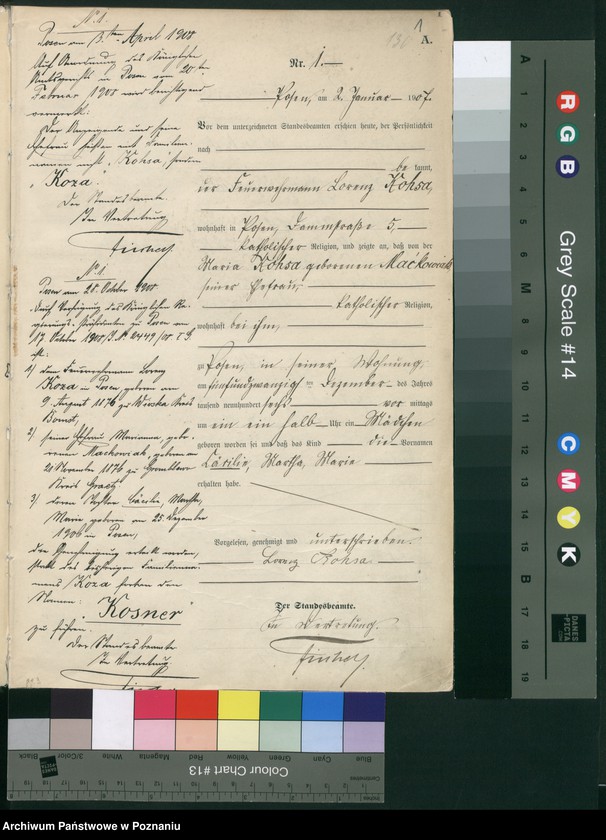 A.
Nr. 1.
Posen, am 2. Januar 1907.
Vor dem unterzeichneten Standesbeamten erschien heute, der Persönlichkeit
nach
be kannt,
der Feuerwehrmann Lorenz Kohsa,
wohnhaft in Posen, Dammstraße 5,
katholischer Religion, und zeigte an, daß von der
Maria Kohsa geborenen Maćkowiak
seiner Ehefrau,
katholischer Religion,
wohnhaft bei ihm,
zu Posen, in seiner Wohnung,
am fünfundzwanzig ten Dezember des Jahres
tausend neunhundert sechs vor mittags
um ein ein halb Uhr ein Mädchen
geboren worden sei und daß das Kind die Vornamen
Cäcilie, Martha, Marie
erhalten habe.
Vorgelesen, genehmigt und unterschrieben.
Lorenz Kohsa
Der Standesbeamte.
In Vertretung.
N. 1.
Posen am 13. ten April 1908
Auf Anordnung des Königlichen
Amtsgerichts in Posen vom 20 ten
Februar 1908 wird berichtigend
vermerkt:
Der Anzeigende und seine
Ehefrau heißen mit Familien-
namen nicht "Kohsa", sondern
"Koza".
Der Standesbeamte
In Vertretung
N. 1.
Posen am 28. October 1908.
Durch Verfügung des Königlichen Re-
gierungs-Präsidenten zu Posen vom
17. October 1908
ist:
1) dem Feuerwehrmann Lorenz
Koza in Posen, geboren am
9. August 1876 zu Kreis
Bomst,
2) seiner Ehefrau Marianna, gebo-
renen Mackowiak, geboren am
November 1876 zu
Kreis Graetz
3) deren Tochter Cäcilie, Martha,
Marie geboren am 25. Dezember
1906 in Posen,
die Genehmigung erteilt worden,
statt des bisherigen Familienna-
mens Koza fortan den
Namen:
"Kosner"
zu führen.
Der Standesbeamte
In Vertretung
Grey Scale #14
A 1 2 3 4 5 6 M 8 9 10 11 12 13 14 15 B 17 18 19
R
G
B
C
M
Y
K
DANES
PICTA
Colour Chart #13
Blue Cyan Green Yellow Red Magenta White 3/Color Black
Centimetres
Inches
Archiwum Państwowe w Poznaniu